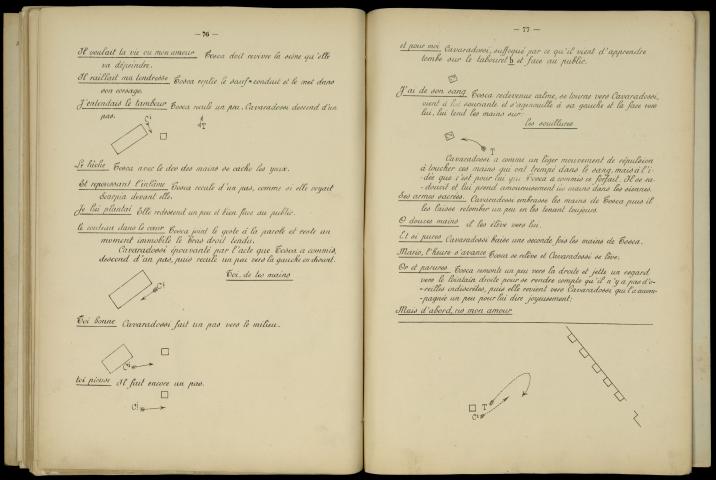 — 76 —
Il voulait ta vie ou mon amour Tosca doit revivre la scène qu'elle
va dépeindre.
Il raillait ma tendresse Tosca replie le sauf-conduit et le met dans
son corsage.
J'entendais le tambour Tosca recule un peu. Cavaradossi descend d'un
pas.
Ci
T
Le lâche Tosca avec le dos des mains se cache les yeux.
Et repoussant l'infâme Tosca recule d'un pas, comme si elle voyait
Scarpia devant elle.
Je lui plantai Elle redescend un peu et bien face au public.
le couteau dans le cœur Tosca joint le geste à la parole et reste un
moment immobile le bras droit tendu.
Cavaradossi épouvanté par l'acte que Tosca a commis,
descend d'un pas, puis recule un peu vers la gauche en disant.
Toi, de tes mains
Ci
Toi bonne Cavaradossi fait un pas vers le milieu.
Ci
toi pieuse Il fait encore un pas.
Ci
— 77 —
et pour moi Cavaradossi, suffoqué par ce qu'il vient d'apprendre
tombe sur le tabouret b et face au public.
J'ai de son sang Tosca redevenue calme, se tourne vers Cavaradossi,
vient à lui souriante et s'agenouille à sa gauche et la face vers
lui, lui tend les mains sur:
les souillures
T
Cavaradossi a comme un léger mouvement de répulsion
à toucher ces mains qui ont trempé dans le sang, mais à l'i-
dée que c'est pour lui que Tosca a commis ce forfait. Il se ra-
doucit et lui prend amoureusement les mains dans les siennes.
Ses armes sacrées. Cavaradossi embrasse les mains de Tosca puis il
les laisse retomber un peu en les tenant toujours.
O douces mains il les élève vers lui.
Et si pures Cavaradossi baise une seconde fois les mains de Tosca.
Mario, l'heure s'avance Tosca se relève et Cavaradossi se lève.
Or et parures Tosca remonte un peu vers la droite et jette un regard
vers le lointain droite pour se rendre compte qu'il n'y a pas d'o-
reilles indiscrètes, puis elle revient vers Cavaradossi qui l'accom-
pagnie un peu pour lui dire joyeusement:
Mais d'abord, ris mon amour
T
Ci